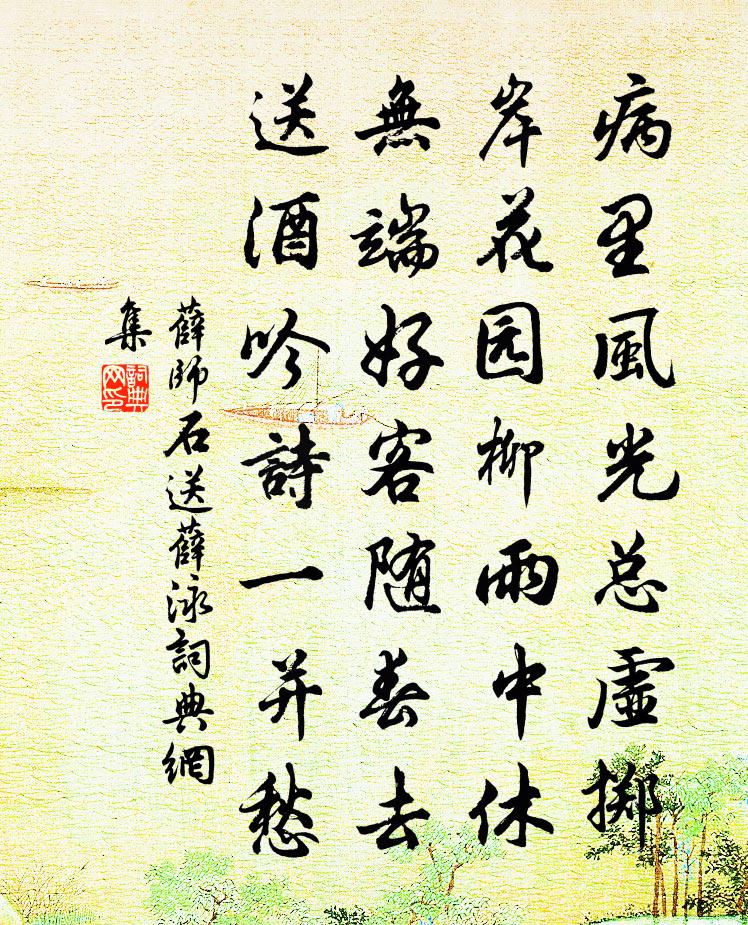 病里風光总虚掷
岸花园柳雨中休
無端好客随春去
送酒吟詩一并愁
薛師石送薛泳詞典網
集
詞典
网印